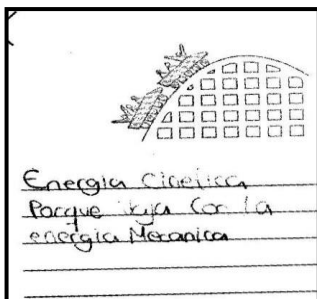 Energia Cinetica
Porque baja con la
energia Mecanica